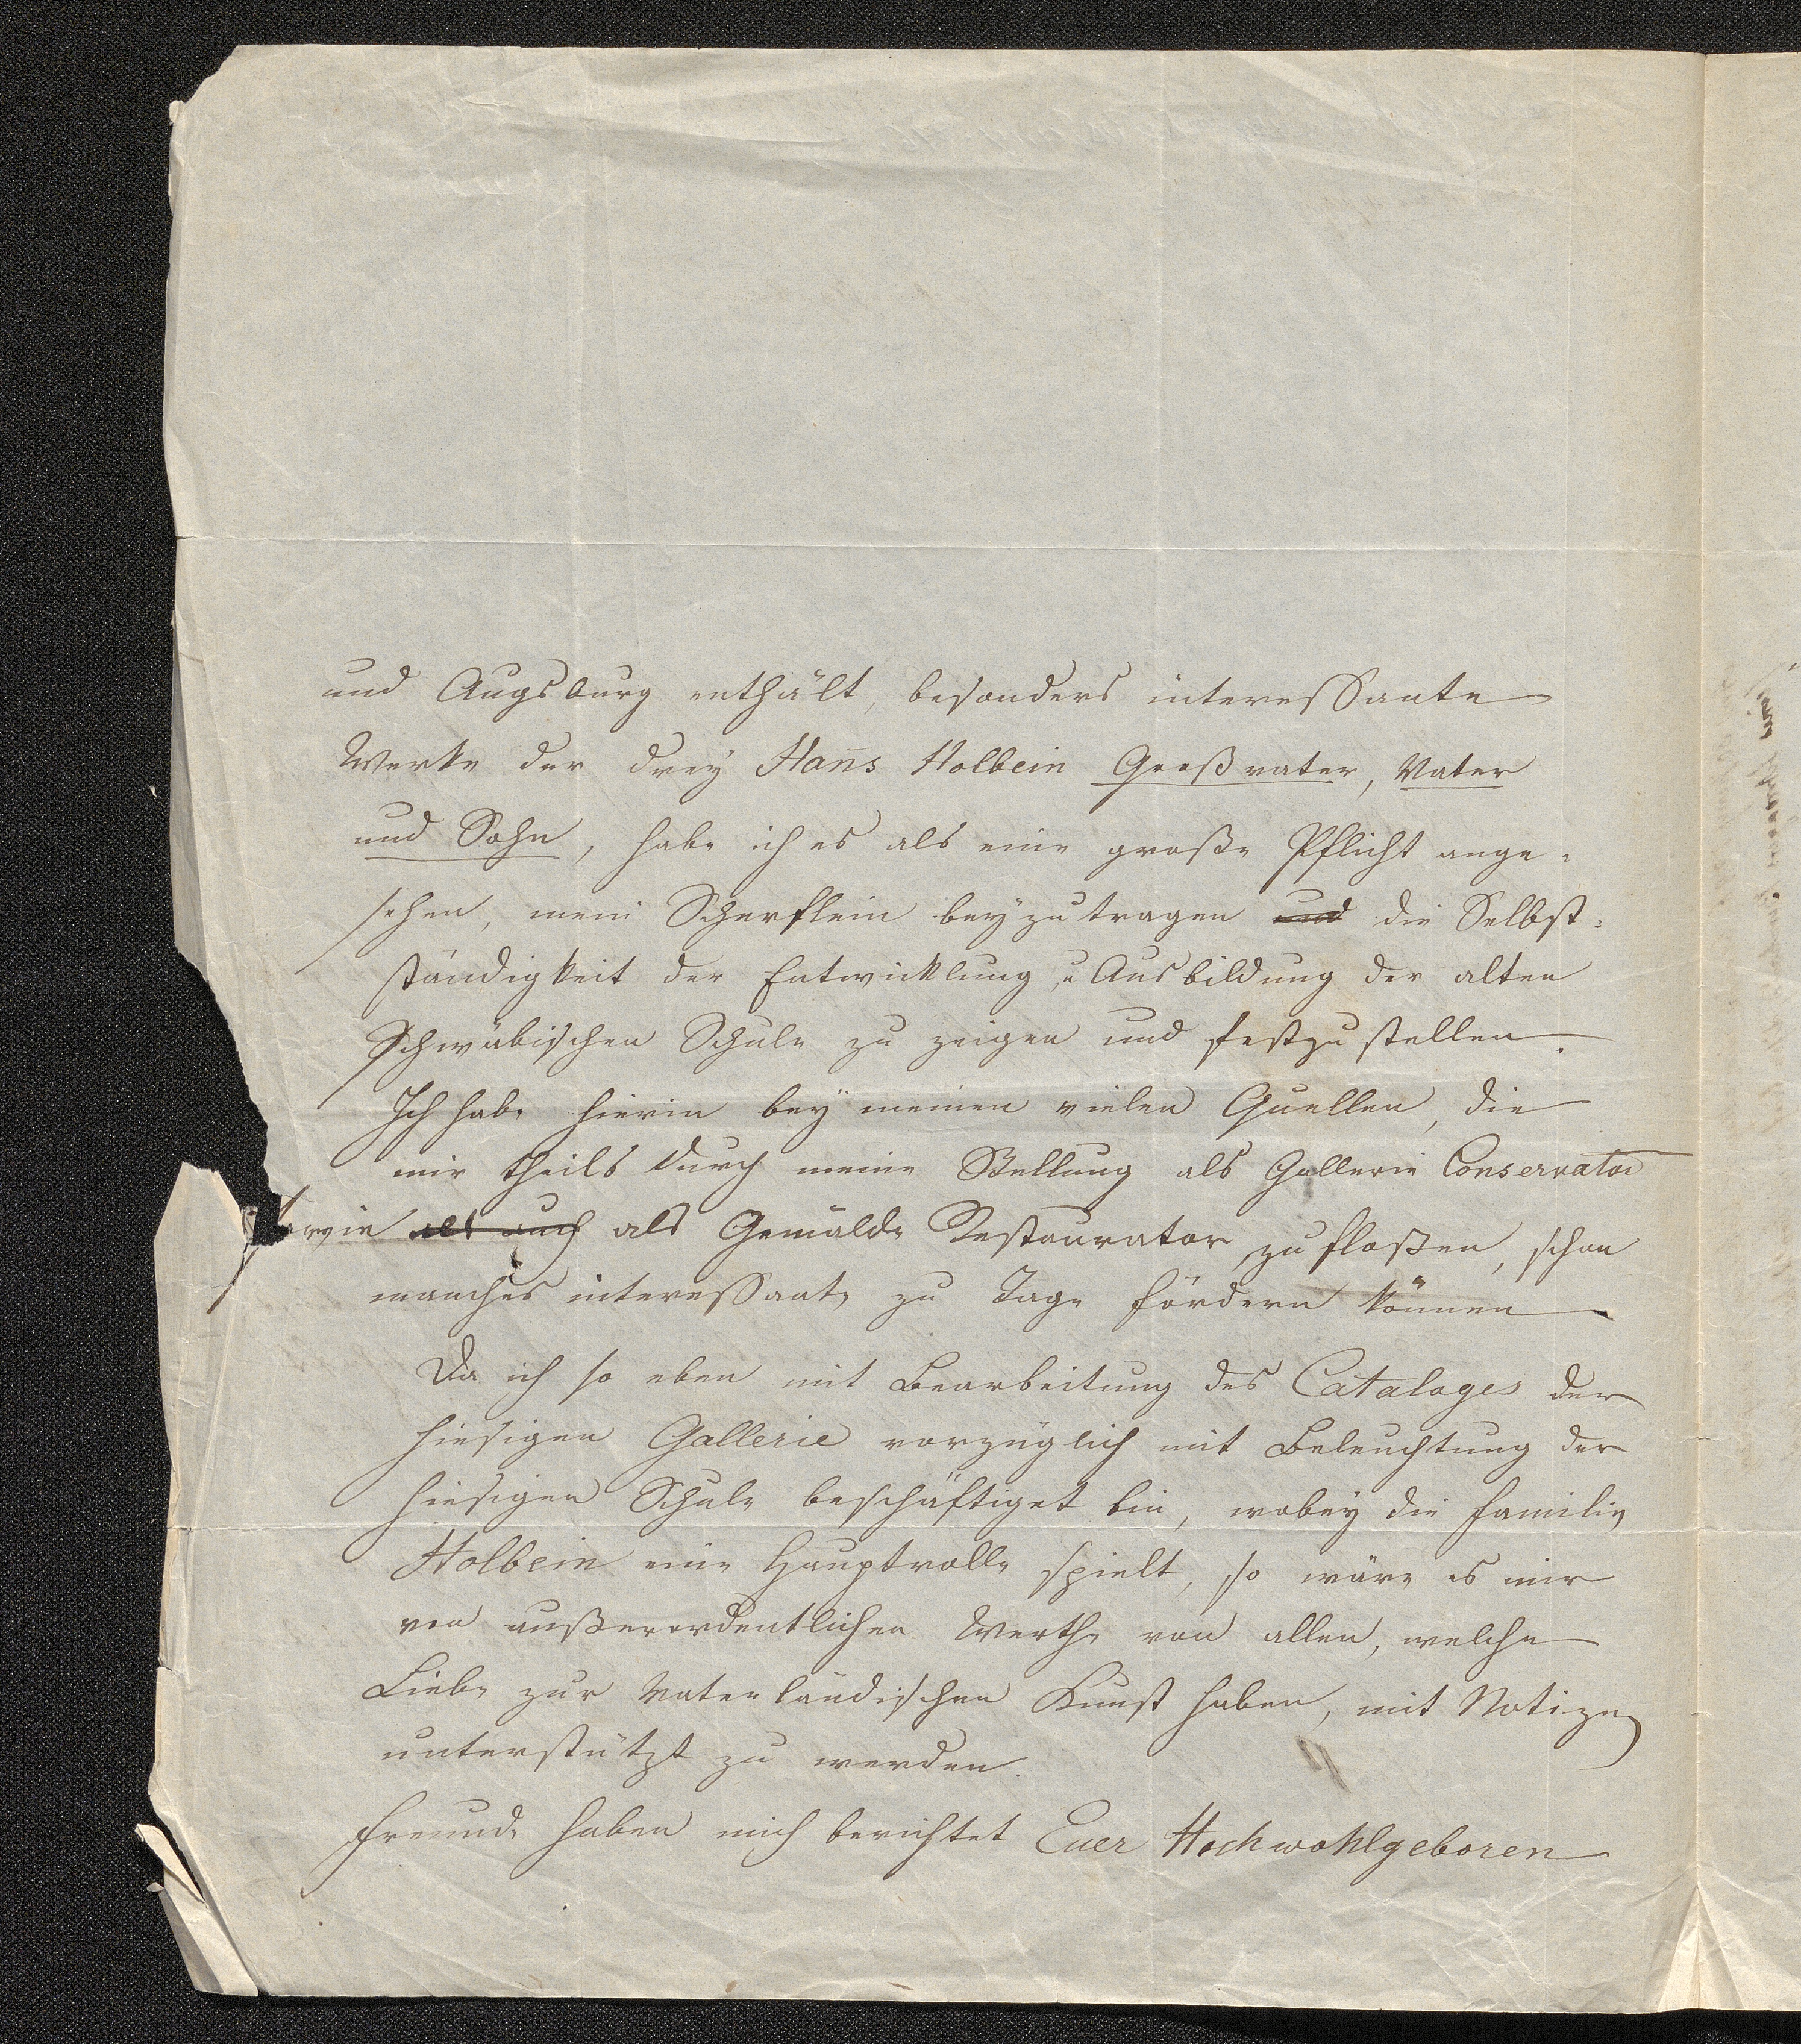 und Augsburg enthält, besonders interessante
Werke der drey Hans Holbein Großvater, Vater
und Sohn, habe ich es als eine große Pflicht ange-
sehen, mein Scherflein beyzutragen und die Selbst-
ständigkeit der Entwicklung u Ausbildung der alten
Schwäbischen Schule zu zeigen und festzustellen.
Ich habe hierin bey meinen vielen Quellen, die
mir theils durch meine Stellung als Gallerie Conservator
sowie als auch als Gemälde Restaurator zufloßen, schon
manches interessante zu Tage fördern können.
Da ich so eben mit Bearbeitung des Cataloges der
hiesigen Gallerie vorzüglich mit Beleuchtung der
hiesigen Schule beschäftiget bin, wobey die Familie
Holbein eine Hauptrolle spielt, so wäre es mir
von außerordentlichen Werthe von allen, welche
Liebe zur Vaterländischen Kunst haben, mit Notizen
unterstützt zu werden.
Freunde haben mich berichtet Euer Hochwohlgeboren